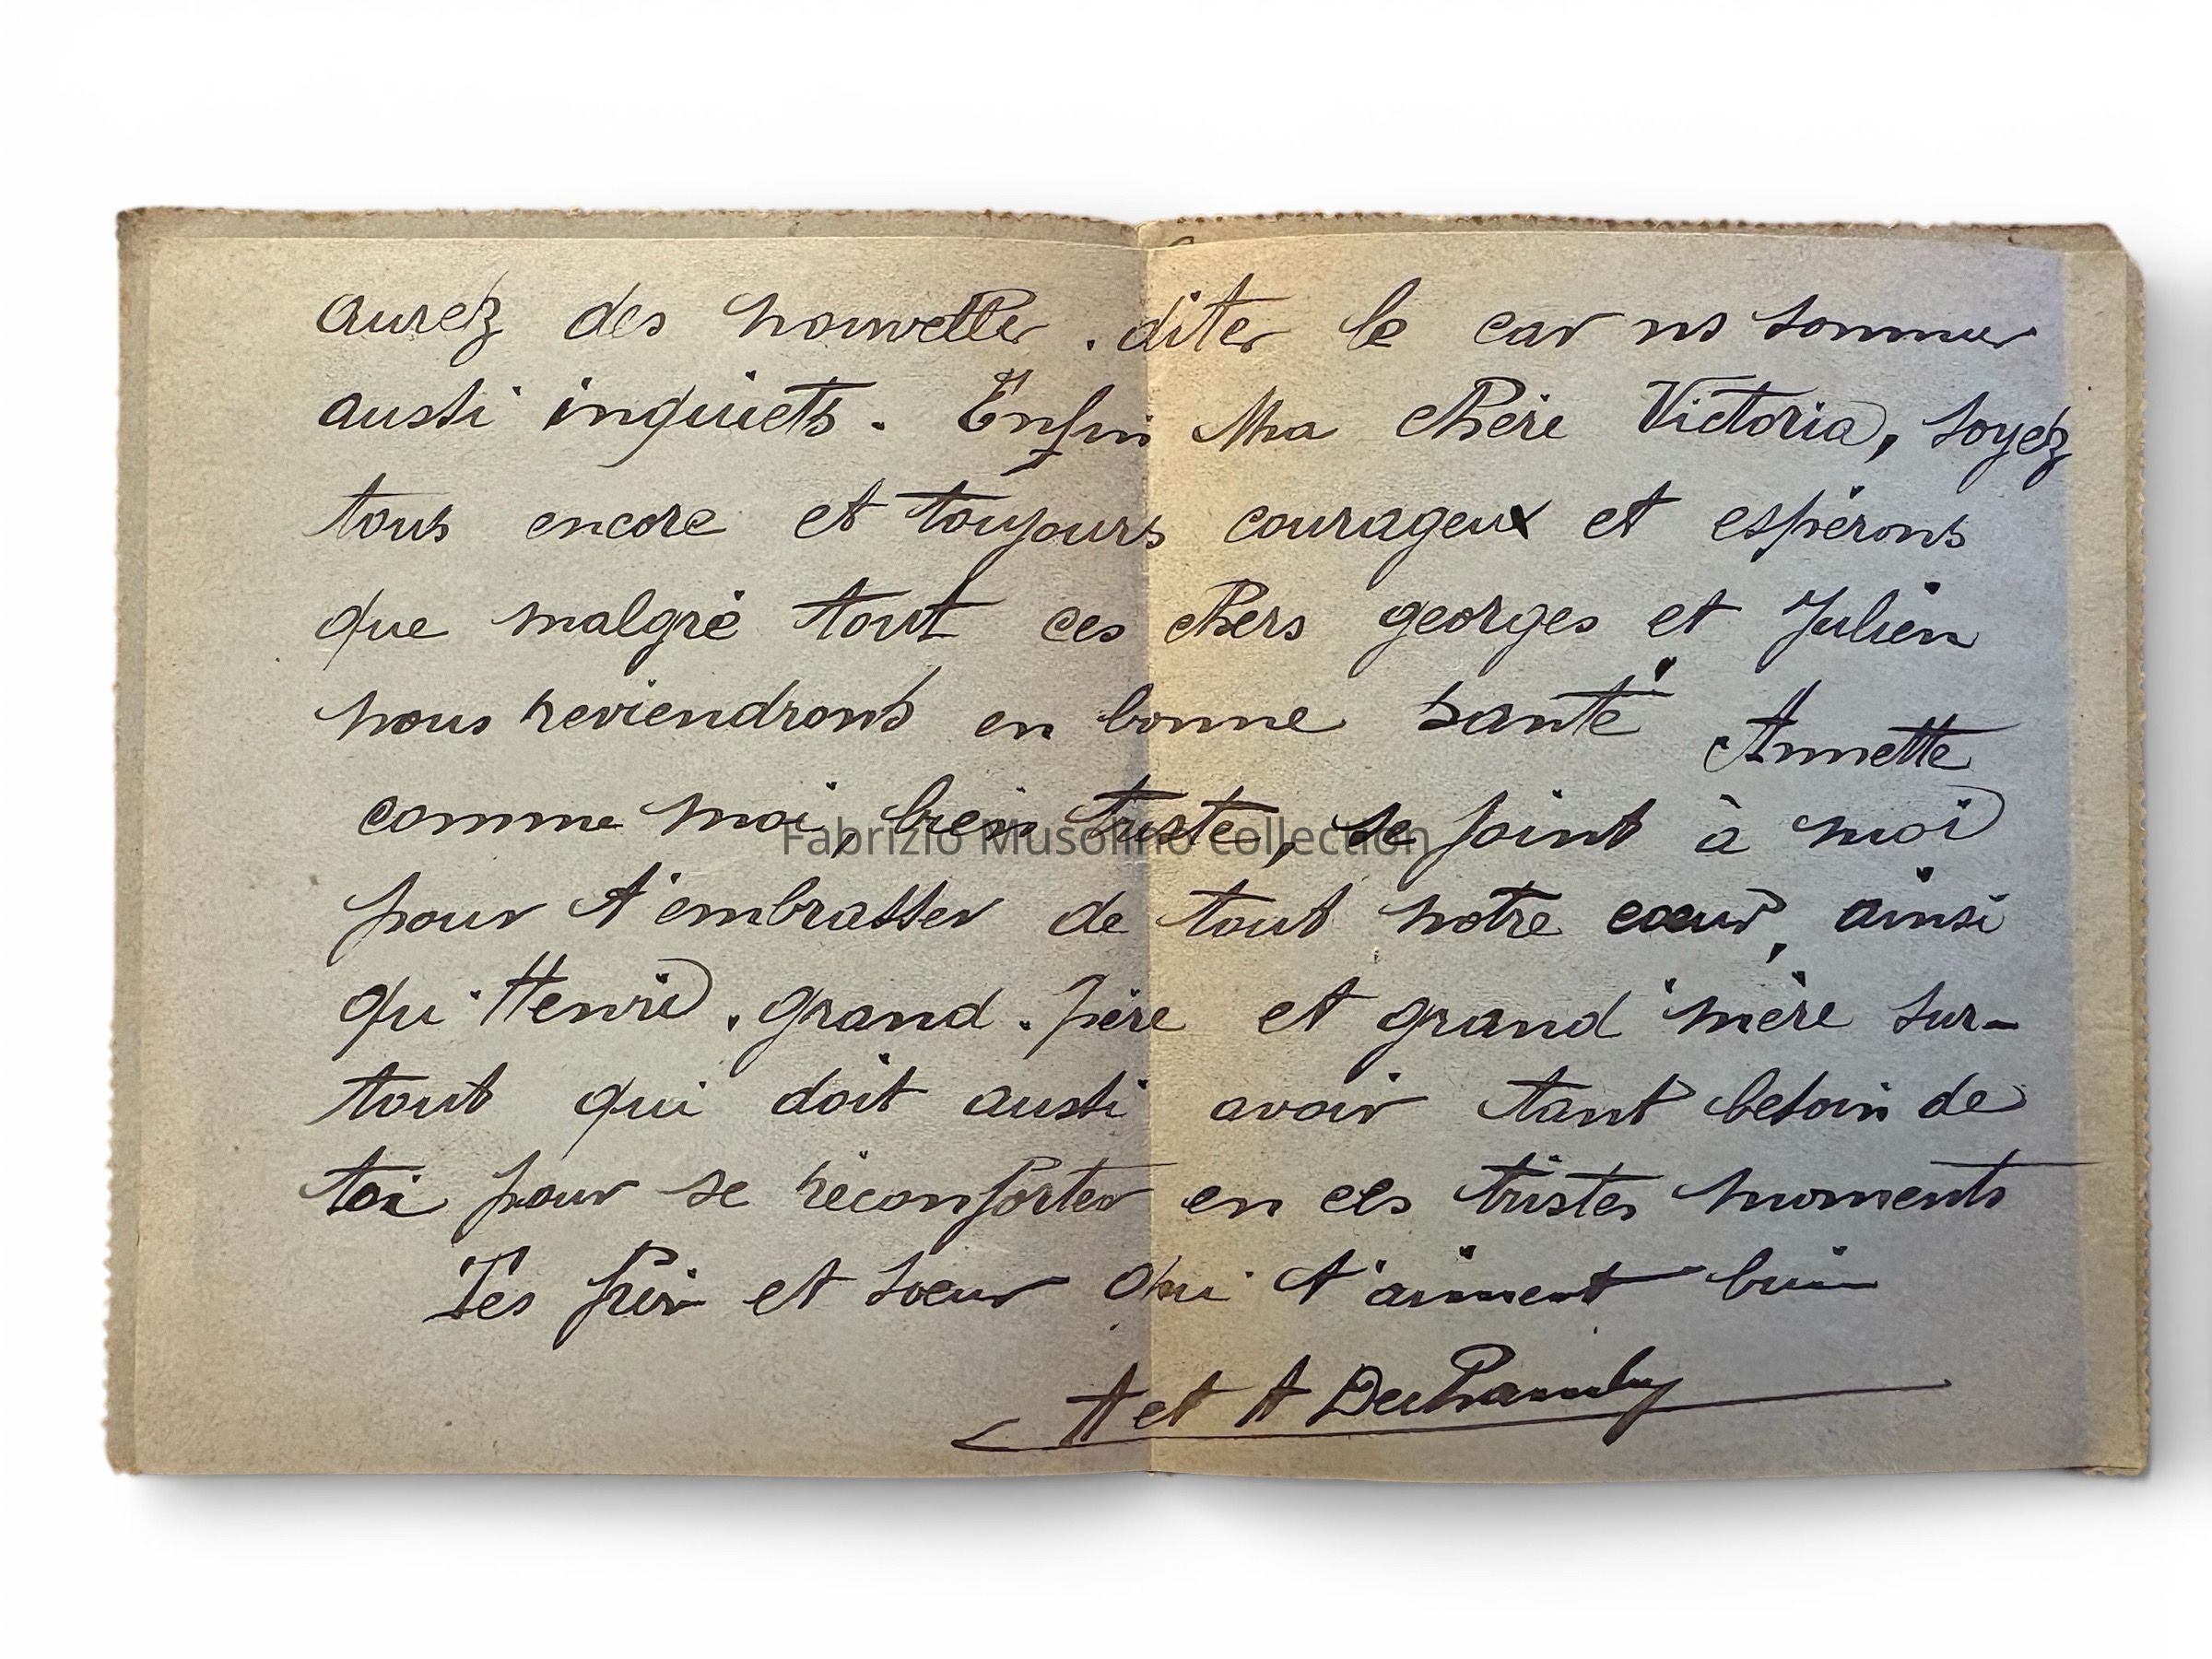 aurez des nouvelles. dites le car ns sommes
aussi inquiets. Enfin Ma chère Victoria, soyez
tous encore et toujours courageux et espérons
que malgré tout ces chers georges et Julien
nous reviendrons en bonne santé Annette
comme moi, bien triste, se joint à moi
pour t'embrasser de tout notre coeur, ainsi
qu'Henri. grand. père et grand'mère sur-
tout qui doit aussi avoir tant besoin de
toi pour se réconforter en ces tristes moments
Tes frère et soeur qui t'aiment bien
A et A
Fabrizio Musolino collection